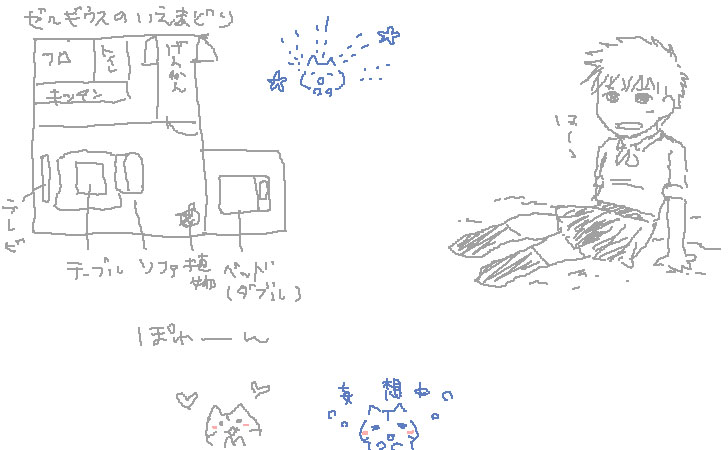 ゼルギウスのいえまどり
フロ
トイレ
げんかん
キッチン
テレビ
テーブル
ソファ
植物
ベッド
(ダブル)
ほーぅ
ぽわーん
妄想中